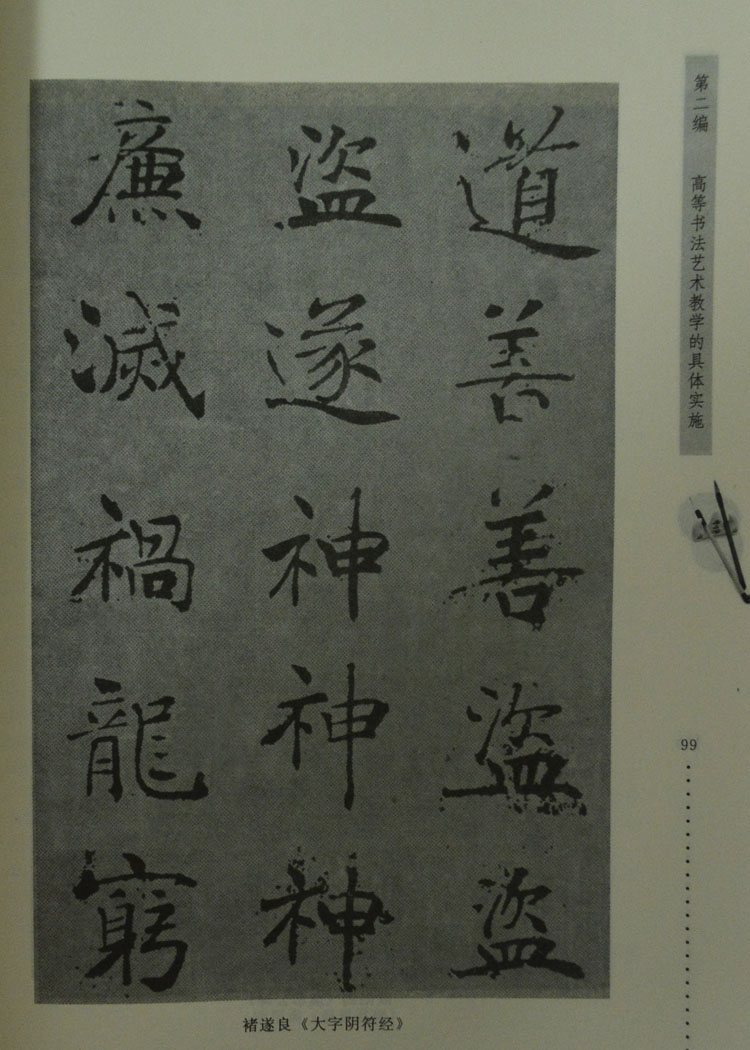 道善善盜盜
盜遂神神神
廉滅禍龍窮
褚遂良《大字阴符经》
第二编 高等书法艺术教学的具体实施
99